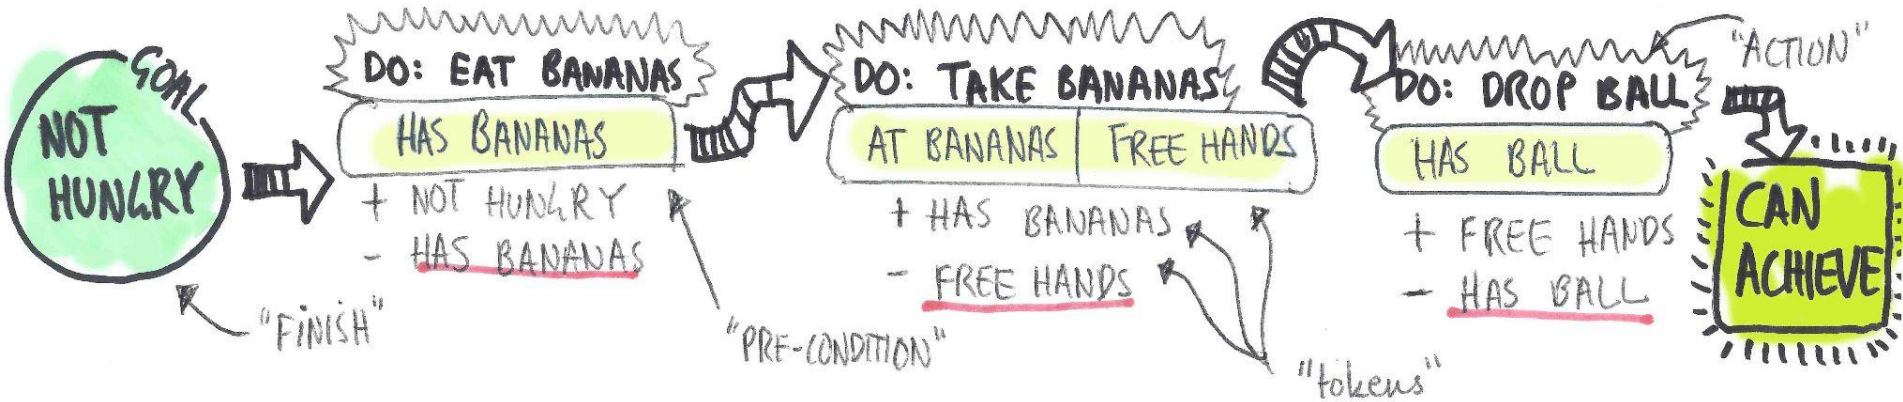 GOAL
NOT
HUNGRY
"FINISH"
DO: EAT BANANAS
HAS BANANAS
+ NOT HUNGRY
- HAS BANANAS
"PRE-CONDITION"
DO: TAKE BANANAS
AT BANANAS FREE HANDS
+ HAS BANANAS
- FREE HANDS
"tokens"
DO: DROP BALL
HAS BALL
+ FREE HANDS
- HAS BALL
"ACTION"
CAN
ACHIEVE